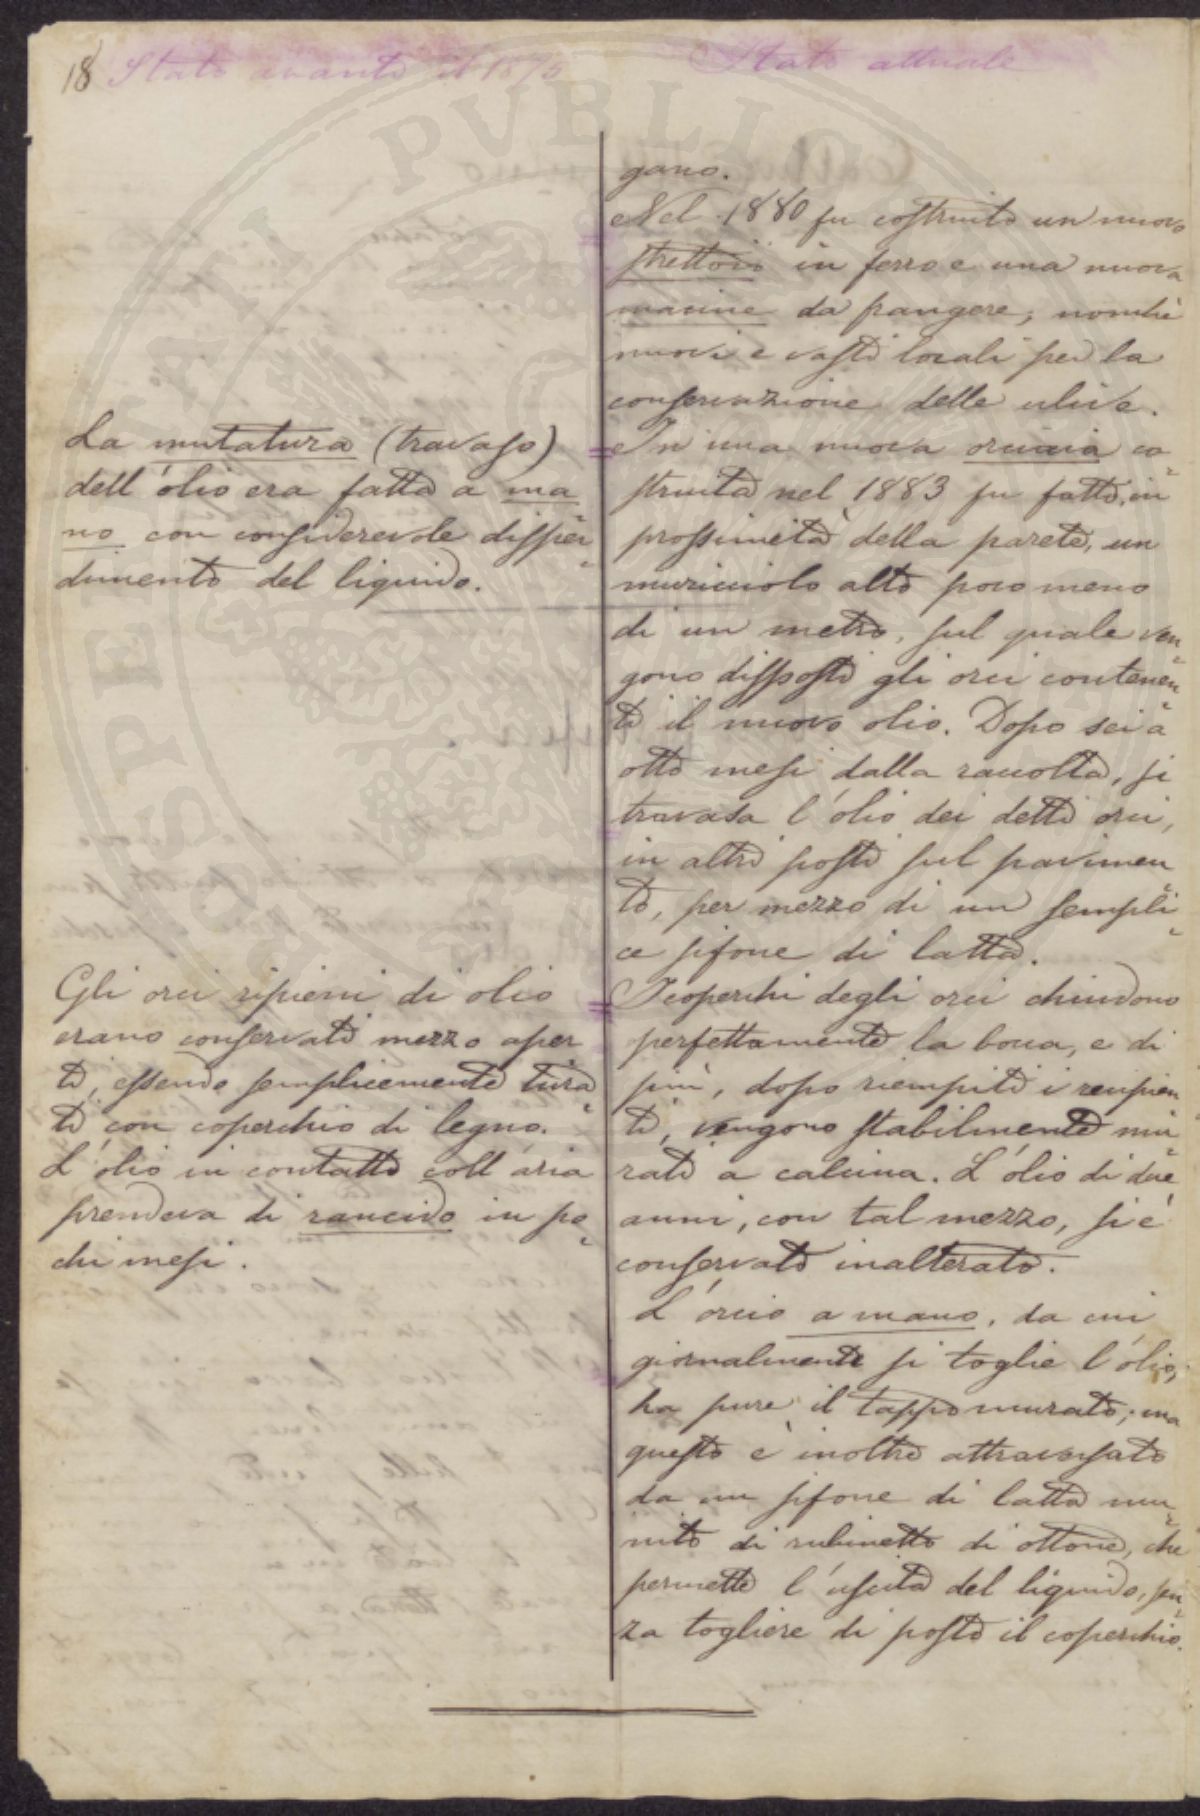 18 Stato avanti il 1875
Stato attuale
La mutatura (travaso)
dell'olio era fatta a ma
no con considerevole disper-
dimento del liquido.
Gli orci ripieni di olio
erano conservati mezzo aper
ti, essendo semplicemente tura-
ti con coperchio di legno.
L'olio in contatto coll'aria
prendeva di rancido in po-
chi mesi.
gano.
Nel 1880 fu costruito un nuovo
strettoio in ferro e una nuova
macine da frangere; nonchè
nuovi e vasti locali per la
conservazione delle ulive.
In una nuova orciaia co-
struita nel 1883 fu fatto, in
prossimità della parete, un
muricciolo alto poco meno
di un metro, sul quale ven-
gono disposti gli orci contenen-
ti il nuovo olio. Dopo sei a
otto mesi dalla raccolta, si
travasa l'olio dei detti orci,
in altri posti sul pavimen-
to, per mezzo di un sempli-
ce sifone di latta.
I coperchi degli orci chiudono
perfettamente la bocca, e di
più, dopo riempiti i recipien-
ti, vengono stabilmente mu-
rati a calcina. L'olio di due
anni, con tal mezzo, si è
conservato inalterato.
L'orcio a mano, da cui
giornalmente si toglie l'olio,
ha pure il tappo murato; ma
questo è inoltre attraversato
da un sifone di latta mu-
nito di rubinetto di ottone, che
permette l'uscita del liquido, sen-
za togliere di posto il coperchio.
SPECTATI PVBLIC